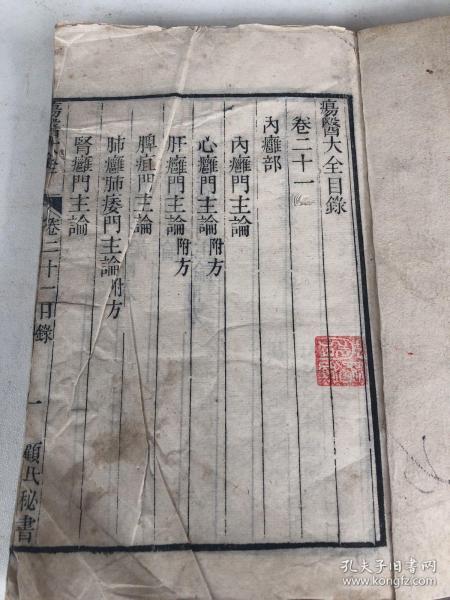 瘍醫大全目錄
卷二十一
內癰部
內癰門主論
心癰門主論附方
肝癰門主論附方
脾疽門主論
肺癰肺痿門主論附方
腎癰門主論
瘍醫大全
卷二十一目錄
一
顧氏秘書
孔夫子旧书网
www.kongfz.com